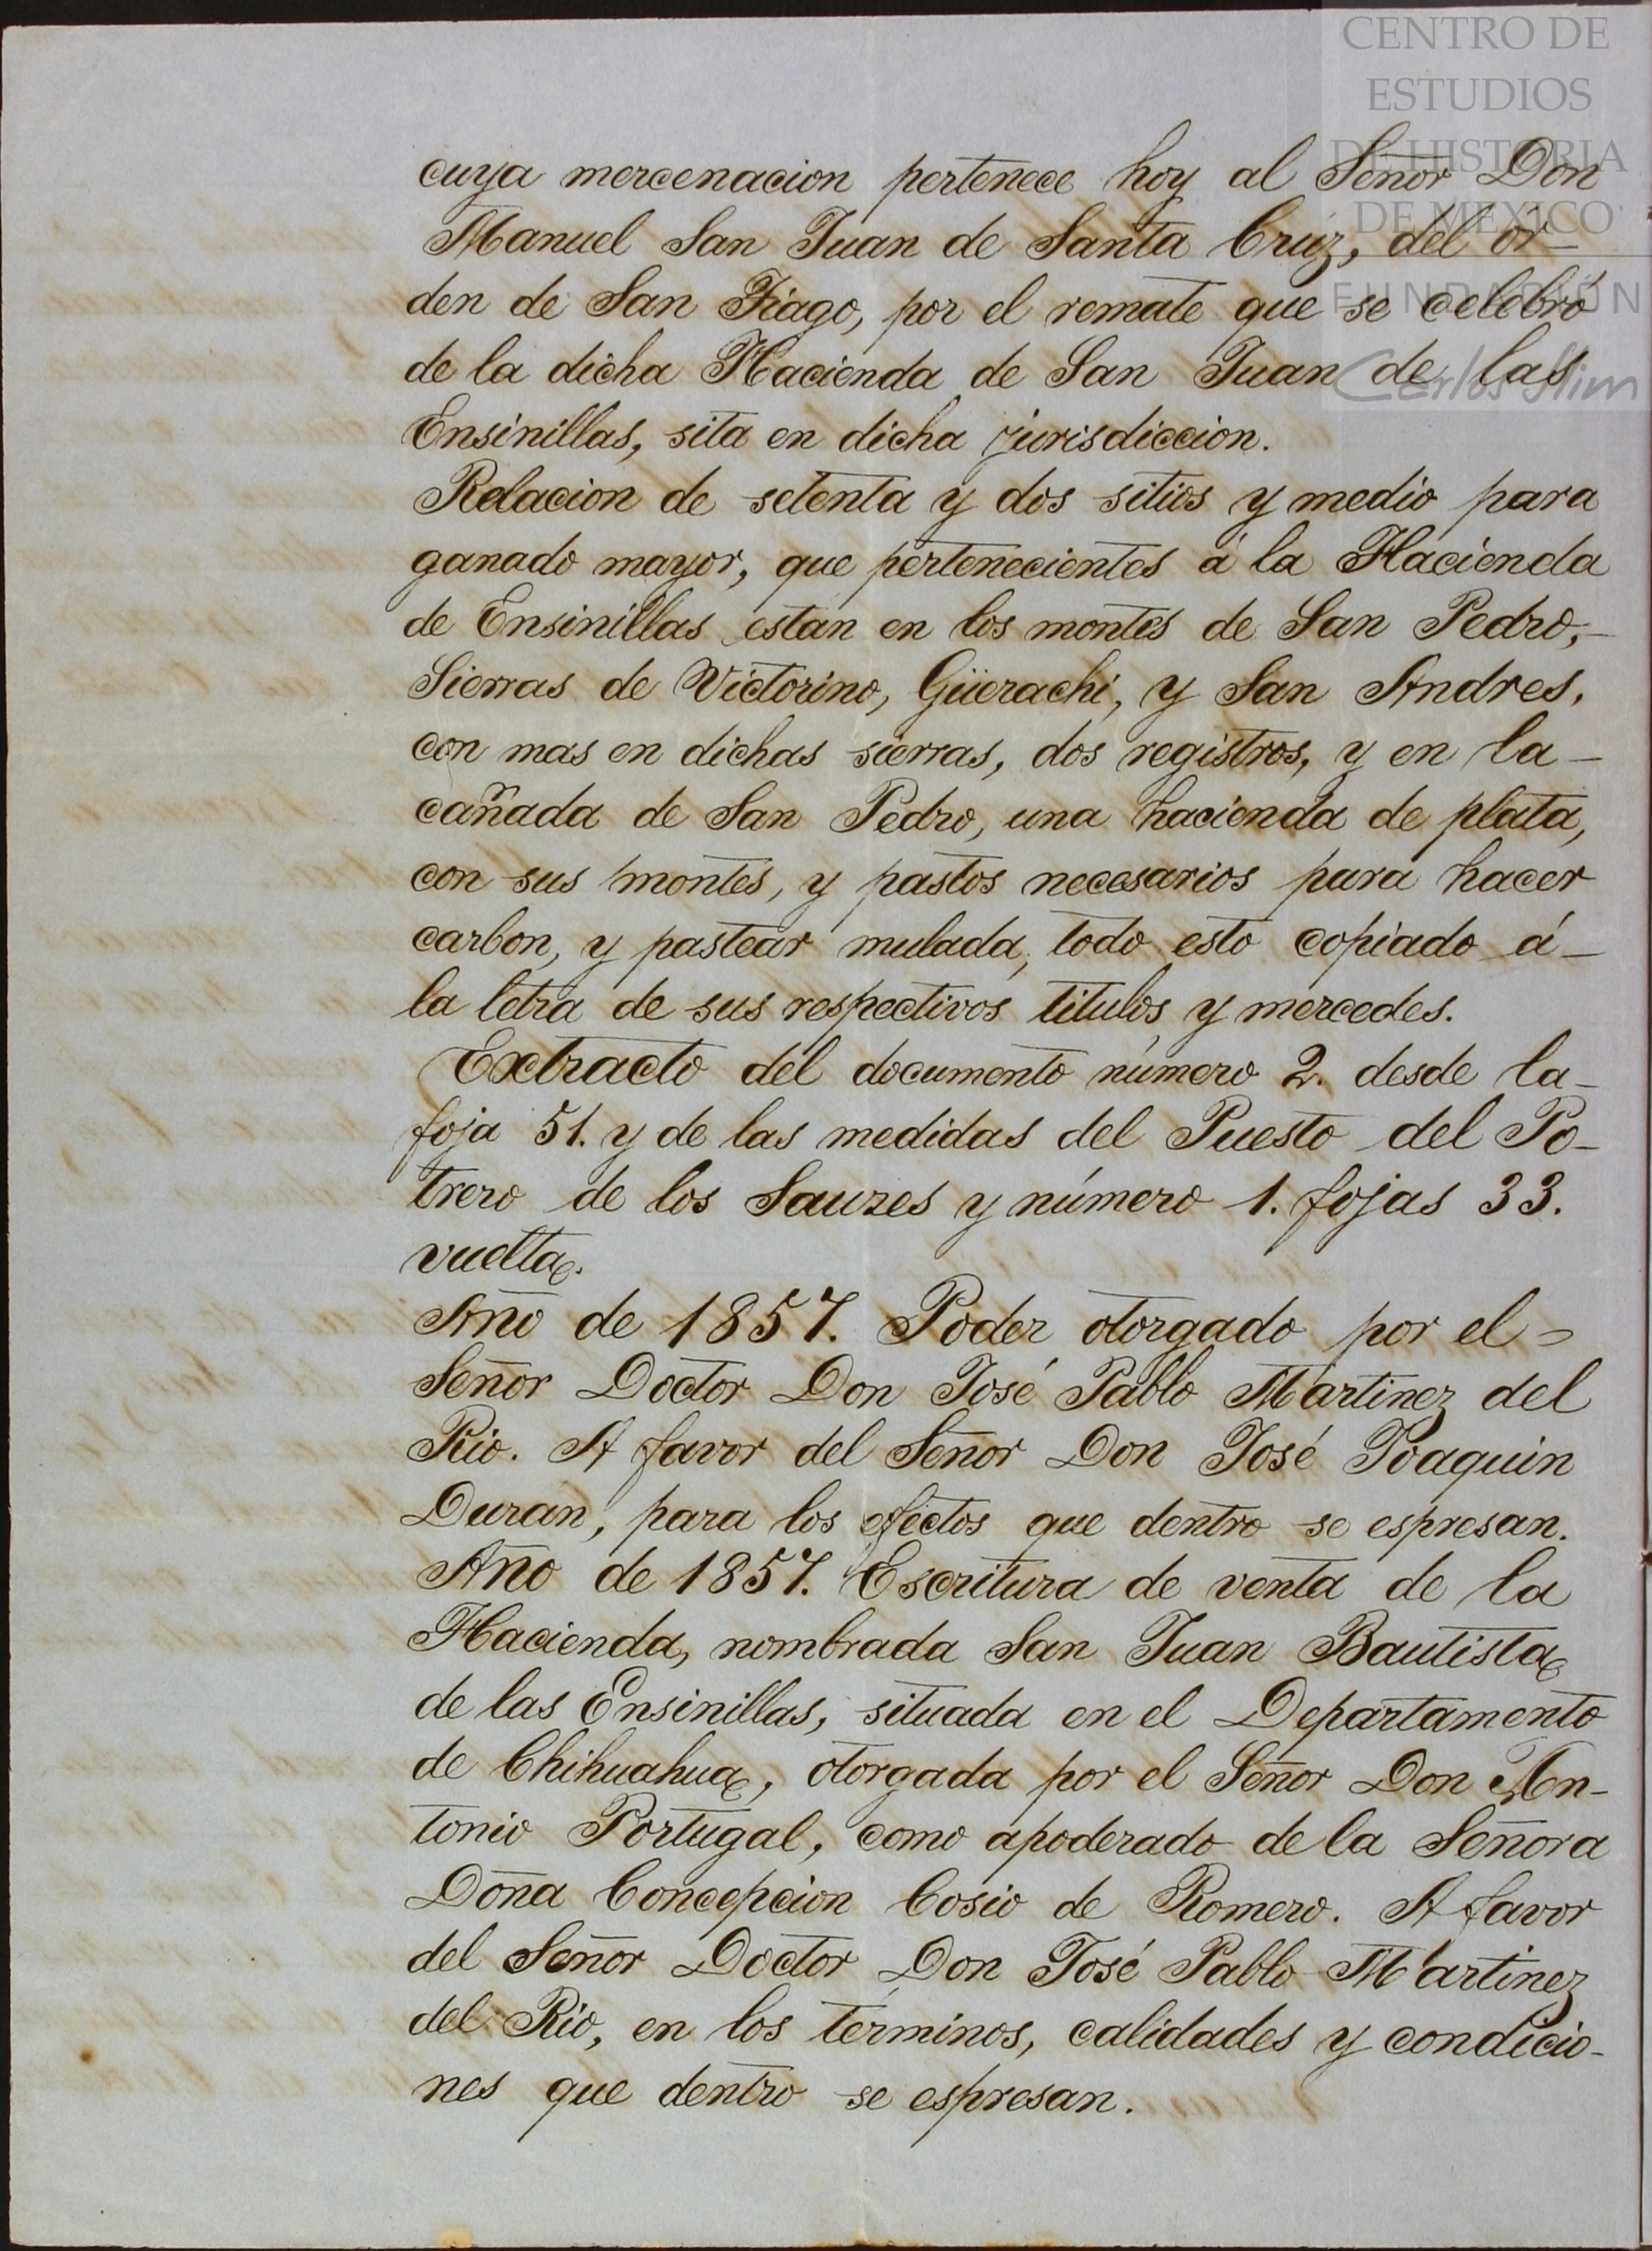 CENTRO DE
ESTUDIOS
DE HISTORIA
DE MÉXICO
FUNDACIÓN
Carlos Slim
cuya mercenacion pertenece hoy al Señor Don
Manuel San Juan de Santa Cruz, del ór-
den de San Tiago, por el remate que se celebró
de la dicha Hacienda de San Juan de las
Ensinillas, sita en dicha jurisdiccion.
Relacion de setenta y dos sitios y medio para
ganado mayor, que pertenecientes á la Hacienda
de Ensinillas estan en los montes de San Pedro,-
Sierras de Victorino, Güerachi, y San Andres,
con mas en dichas sierras, dos registros, y en la-
cañada de San Pedro, una hacienda de plata,
con sus montes, y pastos necesarios para hacer
carbon, y pastear mulada, todo esto copiado á-
la letra de sus respectivos titulos y mercedes.
Extracto del documento número 2. desde la-
foja 51. y de las medidas del Puesto del Po-
trero de los Sauzes y número 1. fojas 33.
vuelta.
Año de 1857. Poder otorgado por el=
Señor Doctor Don José Pablo Martinez del
Rio. A favor del Señor Don José Joaquin
Duran, para los efectos que dentro se espresan.
Año de 1857. Escritura de venta de la
Hacienda, nombrada San Juan Bautista
de las Ensinillas, situada en el Departamento
de Chihuahua, otorgada por el Señor Don An-
tonio Portugal, como apoderado de la Señora
Doña Concepcion Cosio de Romero. A favor
del Señor Doctor Don José Pablo Martinez
del Rio, en los términos, calidades y condicio-
nes que dentro se espresan.